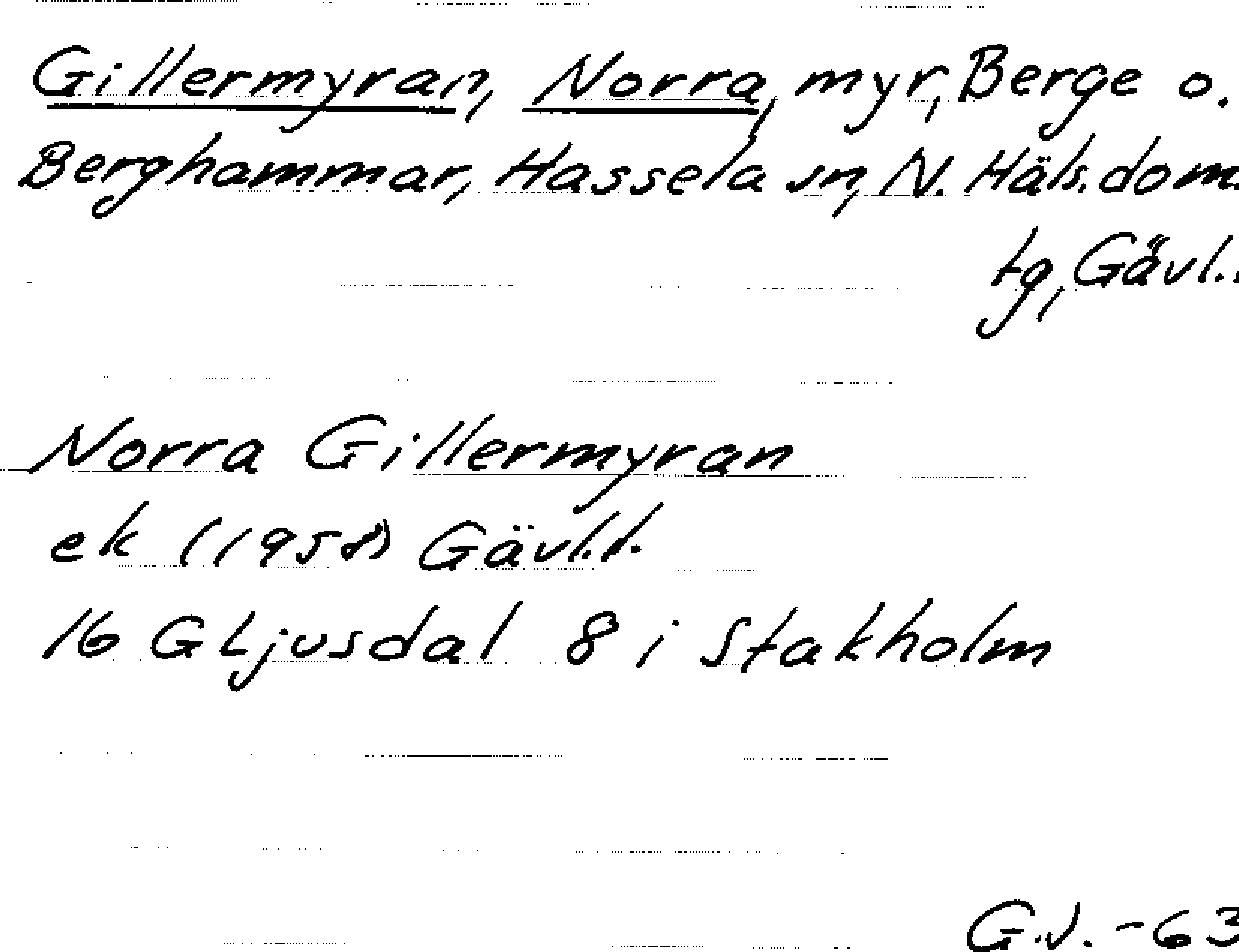 Gillermyran, Norra, myr, Berge o.
Berghammar, Hassela sn, N. Häls. dom.
tg, Gävl.
Norra Gillermyran
ek (1958) Gävl.l.
16 G Ljusdal 8 i Stakholm
G.J. -63